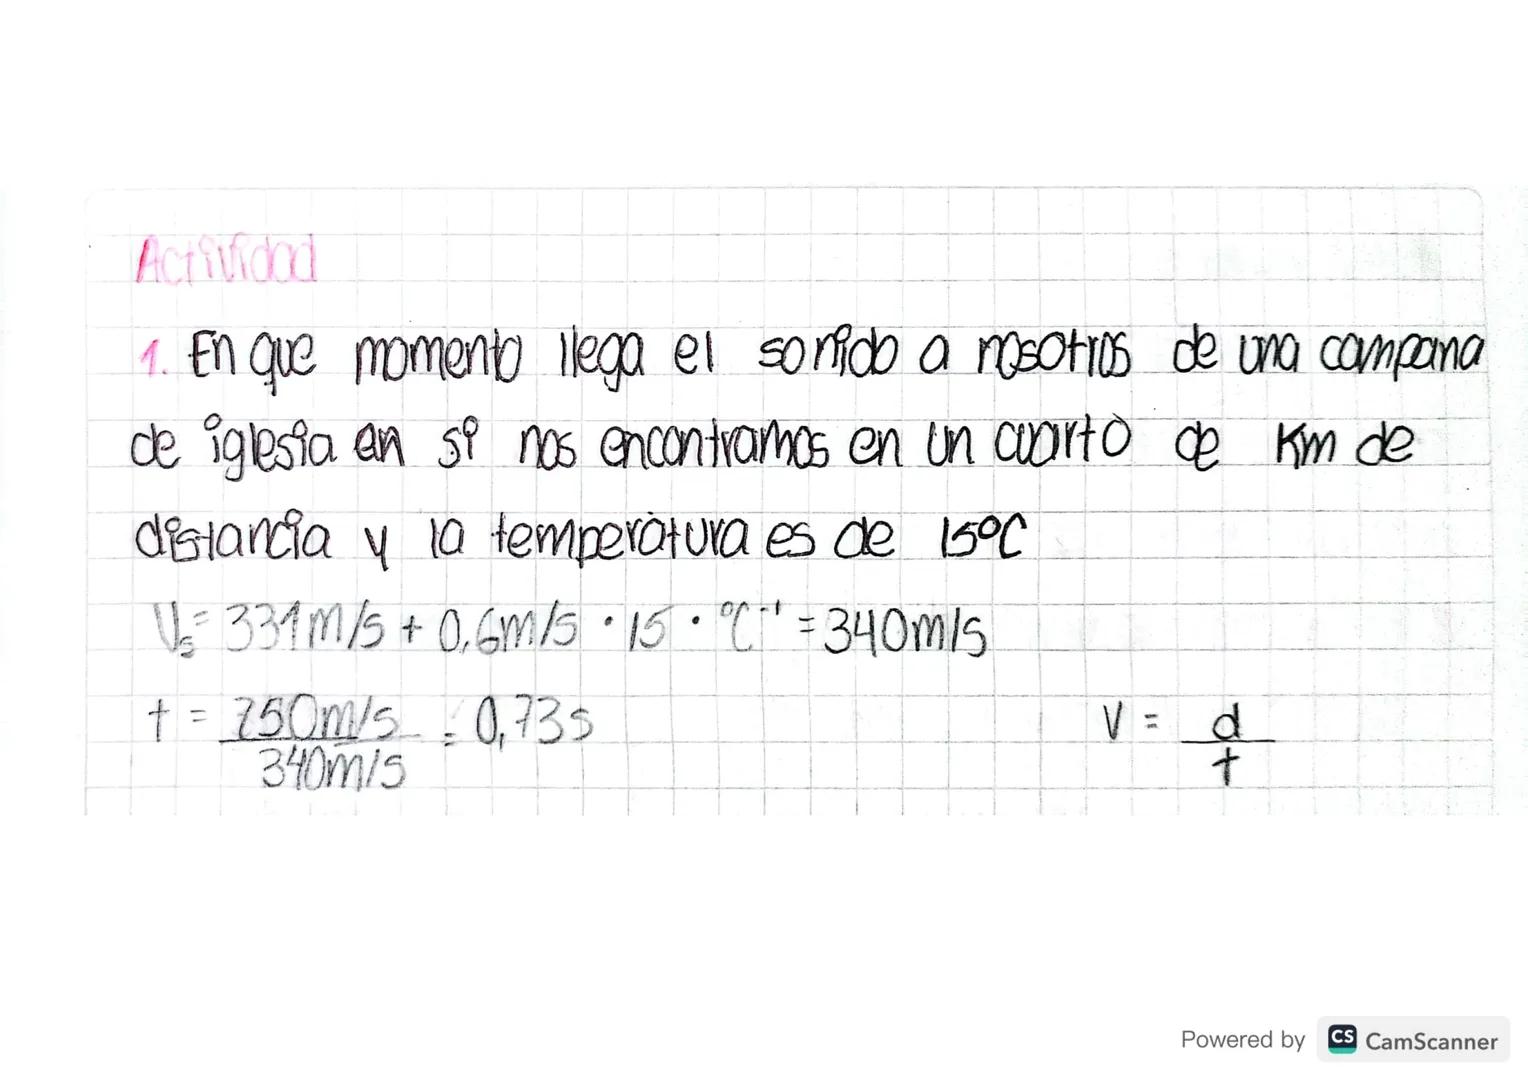 Actividad
1. En que momento llega el sonido a nosotros de una campana
de iglesia en si nos encontramos en un cuarto de Km de
distancia y la temperatura es de 15°C
Vs = 331m/s + 0,6m/s · 15 · °C⁻¹ = 340m/s
t = 250m/s / 340m/s = 0,73s
V = d / t
Powered by CS CamScanner